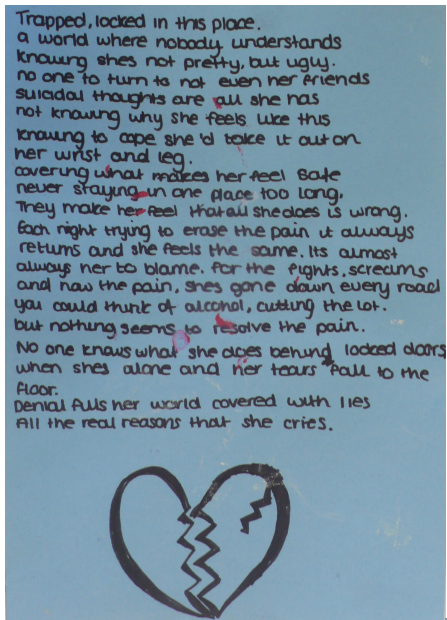 Trapped, locked in this place.
a world where nobody understands
knowing shes not pretty, but ugly.
no one to turn to not even her friends
suicidal thoughts are all she has
not knowing why she feels like this
knowing to cope she'd take it out on
her wrist and leg.
covering what makes her feel safe
never staying in one place too long.
They make her feel that all she does is wrong.
Each night trying to erase the pain it always
returns and she feels the same. Its almost
always her to blame. for the fights, screams
and now the pain, shes gone down every road
you could think of alcohol, cutting the lot.
but nothing seems to resolve the pain.
No one knows what she does behind locked doors
when shes alone and her tears fall to the
floor.
Denial fills her world covered with lies
All the real reasons that she cries.